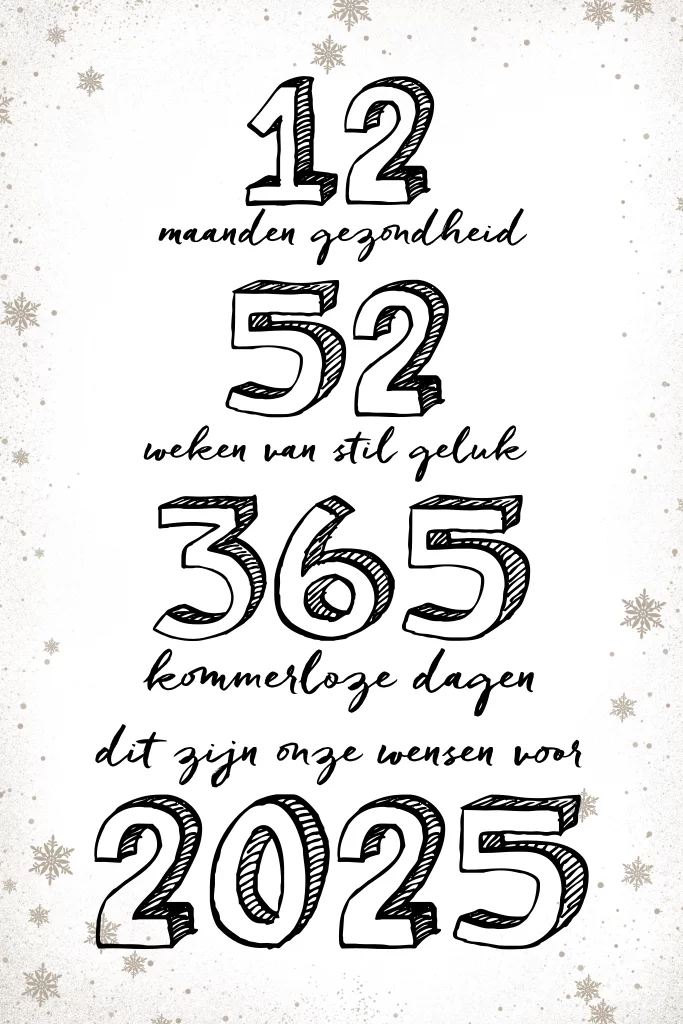 12
maanden gezondheid
52
weken van stil geluk
365
kommerloze dagen
dit zijn onze wensen voor
2025